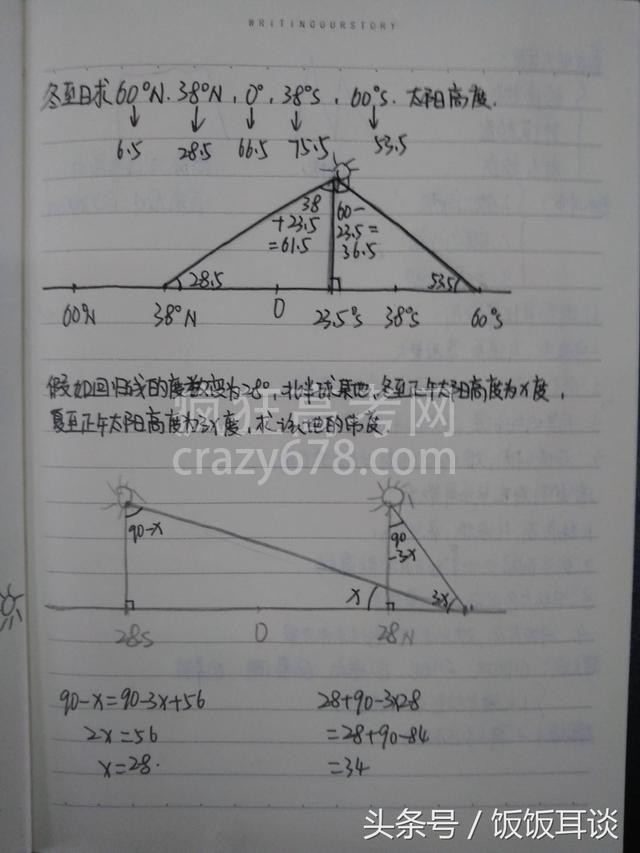 WRITINGOURSTORY
冬至日求60°N、38°N、0°、38°S、60°S、太阳高度.
↓ ↓ ↓ ↓ ↓
6.5 28.5 66.5 75.5 53.5
38 60-
+23.5 23.5=
=61.5 36.5
28.5 53.5
60°N 38°N 0 23.5°S 38°S 60°S
假如回归线的度数变为28°,北半球某地,冬至正午太阳高度为x度,
夏至正午太阳高度为3x度,求该地的纬度.
疯狂高考网
crazy678.com
90-x 90
-3x
x 3x
28S 0 28N
90-x=90-3x+56 28+90-3×28
2x=56 =28+90-84
x=28. =34
头条号 / 饭饭耳谈